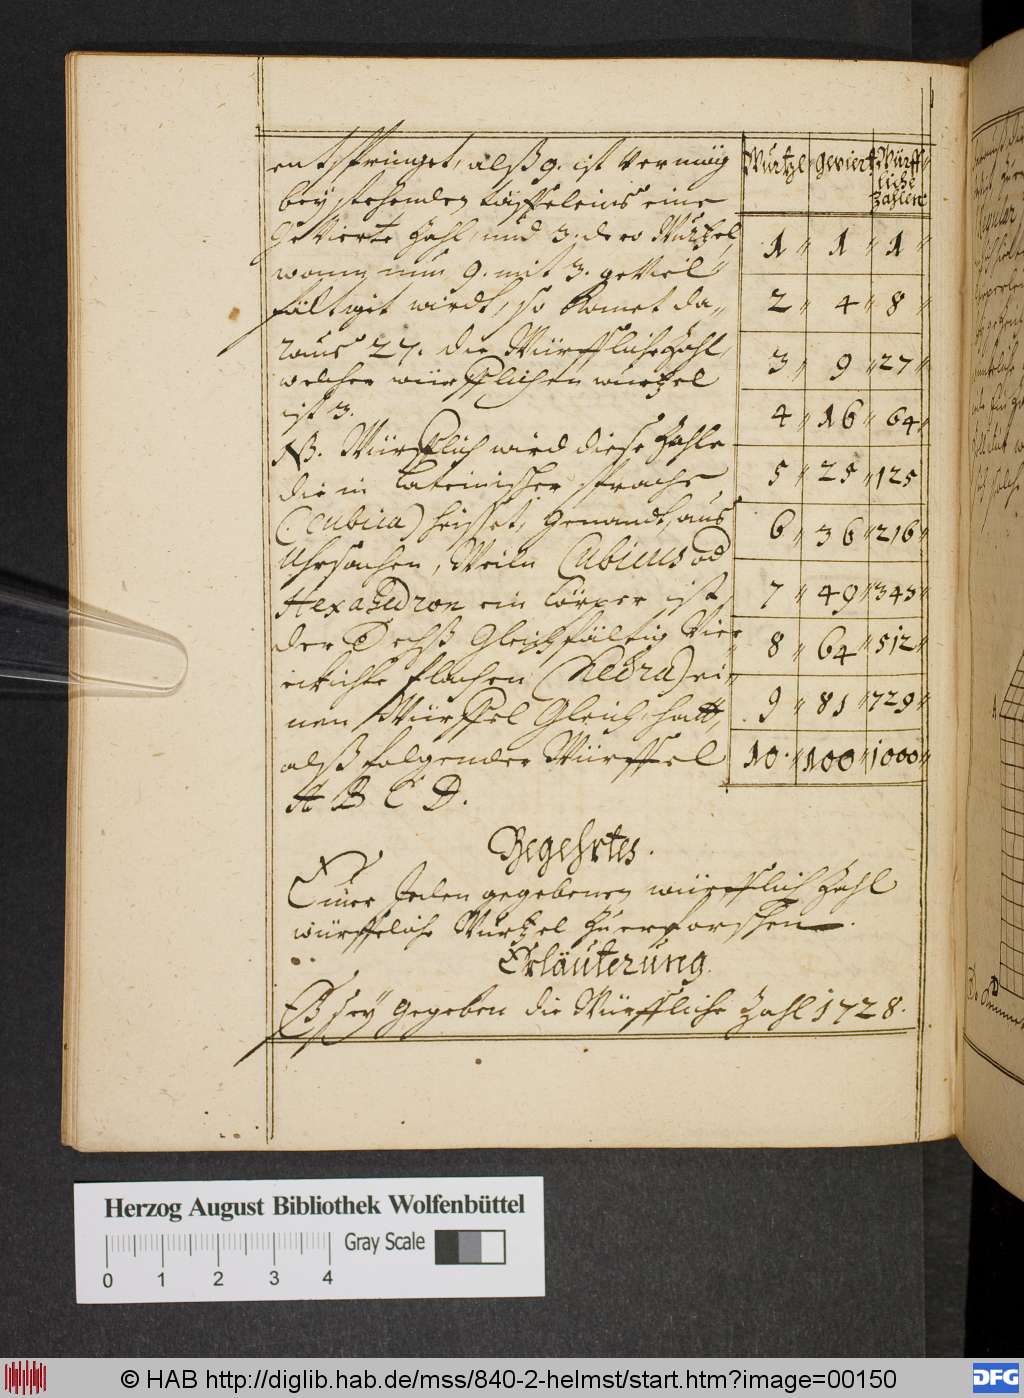 entspringet, alß 9. ist vermög
beystehenden täffeleins eine
Gevierte Zahl, und 3. dero Wurtzel,
wann nun 9. mit 3. geviel„
fältigit wirdt, so komet da„
raus 27. die Würffliche Zahl,
welcher würfflichen wurtzel
ist 3.
NB. Würfflich wird diese Zahle
die in Lateinischer sprache
(Cubica) heisset, genandt, aus
Uhrsachen, Weiln Cubicus od
Hexahedron ein Cörper ist,
der Sechß Gleichfältig Vier
eckichte flachen (hedra) ei„
nen Würffel Gleich, hatt,
alß folgender Würffel
A B C D.
Wurtzl Geviert Würff„
liche
Zahlen
1 „ 1 „ 1 „
2 „ 4 „ 8 „
3 „ 9 „ 27 „
4 „ 16 „ 64 „
5 „ 25 „ 125
6 „ 36 „ 216 „
7 „ 49 „ 343 „
8 „ 64 „ 512 „
9 „ 81 „ 729 „
10. „ 100 „ 1000 „
Begehrtes.
Einer Jeden gegebenen würfflich Zahl
würffliche Wurtzel Zu erforschen.
Erläuterung.
Es sey gegeben die Würffliche Zahl 1728.
Herzog August Bibliothek Wolfenbüttel
Gray Scale
0 1 2 3 4
© HAB http://diglib.hab.de/mss/840-2-helmst/start.htm?image=00150
DFG